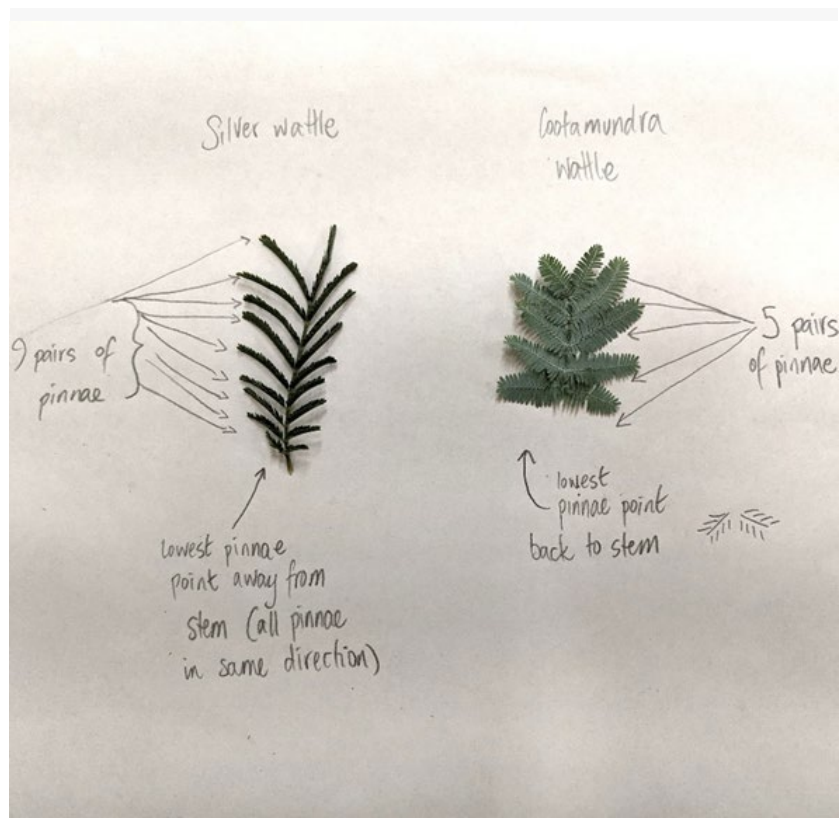 Silver wattle
Cootamundra
wattle
9 pairs of
pinnae
5 pairs
of pinnae
lowest pinnae
point away from
stem (all pinnae
in same direction)
lowest
pinnae point
back to stem